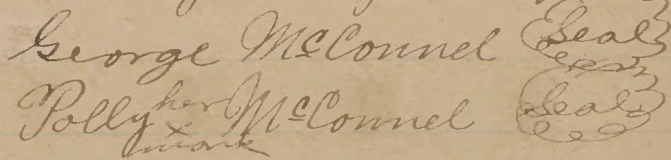 George McConnel Seal
Polly her x mark McConnel Seal